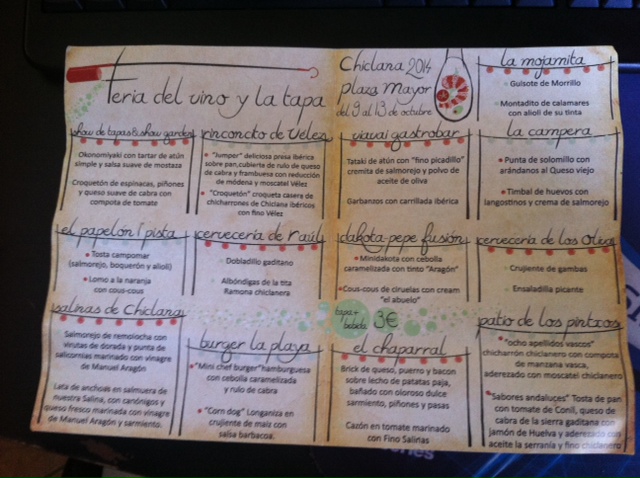 Feria del vino y la tapa
Chiclana 2014
plaza Mayor
del 9 al 13 de octubre
la mojamita
Guisote de Morrillo
Montadito de calamares
con alioli de su tinta
show de tapas&show garden
Okonomiyaki con tartar de atún
simple y salsa suave de mostaza
Croquetón de espinacas, piñones
y queso suave de cabra con
compota de tomate
rinconcito de Vélez
"Jumper" deliciosa presa ibérica
sobre pan,cubierta de rulo de queso
de cabra y frambuesa con reducción
de módena y moscatel Vélez
"Croquetón" croqueta casera de
chicharrones de Chiclana ibéricos
con fino Vélez
viavai gastrobar
Tataki de atún con "fino picadillo"
cremita de salmorejo y polvo de
aceite de oliva
Garbanzos con carrillada ibérica
la campera
Punta de solomillo con
arándanos al Queso viejo
Timbal de huevos con
langostinos y crema de salmorejo
el papelón I pista
Tosta campomar
(salmorejo, boquerón y alioli)
Lomo a la naranja
con cous-cous
cervecería de Raúl
Dobladillo gaditano
Albóndigas de la tita
Ramona chiclanera
dakota-pepe fusión
Minidakota con cebolla
caramelizada con tinto "Aragón"
Cous-cous de ciruelas con cream
"el abuelo"
cervecería de los Olivos
Crujiente de gambas
Ensaladilla picante
salinas de Chiclana
Salmorejo de remolocha con
virutas de dorada y punta de
salicornias marinado con vinagre
de Manuel Aragón
Lata de anchoas en salmuera de
nuestra Salina, con canónigos y
queso fresco marinada con vinagre
de Manuel Aragón y sarmiento.
tapa+
bebida 3€
burger la playa
"Mini chef burger"hamburguesa
con cebolla caramelizada
y rulo de cabra
"Corn dog" Longaniza en
crujiente de maíz con
salsa barbacoa.
el chaparral
Brick de queso, puerro y bacon
sobre lecho de patatas paja,
bañado con oloroso dulce
sarmiento, piñones y pasas
Cazón en tomate marinado
con Fino Salinas
patio de los pintxos
"ocho apellidos vascos"
chicharrón chiclanero con compota
de manzana vasca,
aderezado con moscatel chiclanero
"Sabores andaluces" Tosta de pan
con tomate de Conil, queso de
cabra de la sierra gaditana con
jamón de Huelva y aderezado con
aceite la serranía y fino chiclanero